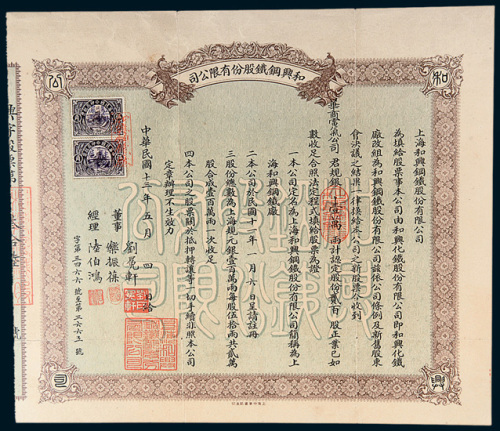 和興鋼鐵股份有限公司
上海和興鋼鐵股份有限公司
為填給股票事本公司由和興化鐵股份有限公司即和興化鐵
廠改組為和興鋼鐵股份有限公司茲依公司條例及新舊股東
會決議之結果一律換給本公司之新股票今收到
華商電氣公司 君規銀 壹萬兩計認定股份貳百股正業已如
數收足合照法定程式填給股票為證
一本公司定名為上海和興鋼鐵股份有限公司簡稱為上
海和興鋼鐵廠
二本公司於民國十一年一月六日呈請註冊
三股份總數為上海規元銀壹百萬兩每股伍拾兩共貳萬
股合成壹百萬兩一次收足
四本公司之股票關於抵押轉讓等一切手續非照本公司
定章辦理不生效力
中華民國十三年五月四日給
董事 劉 軒
樂振葆
經理 陸伯鴻
字第三四六六號至第三六六五號
和
興
公
司